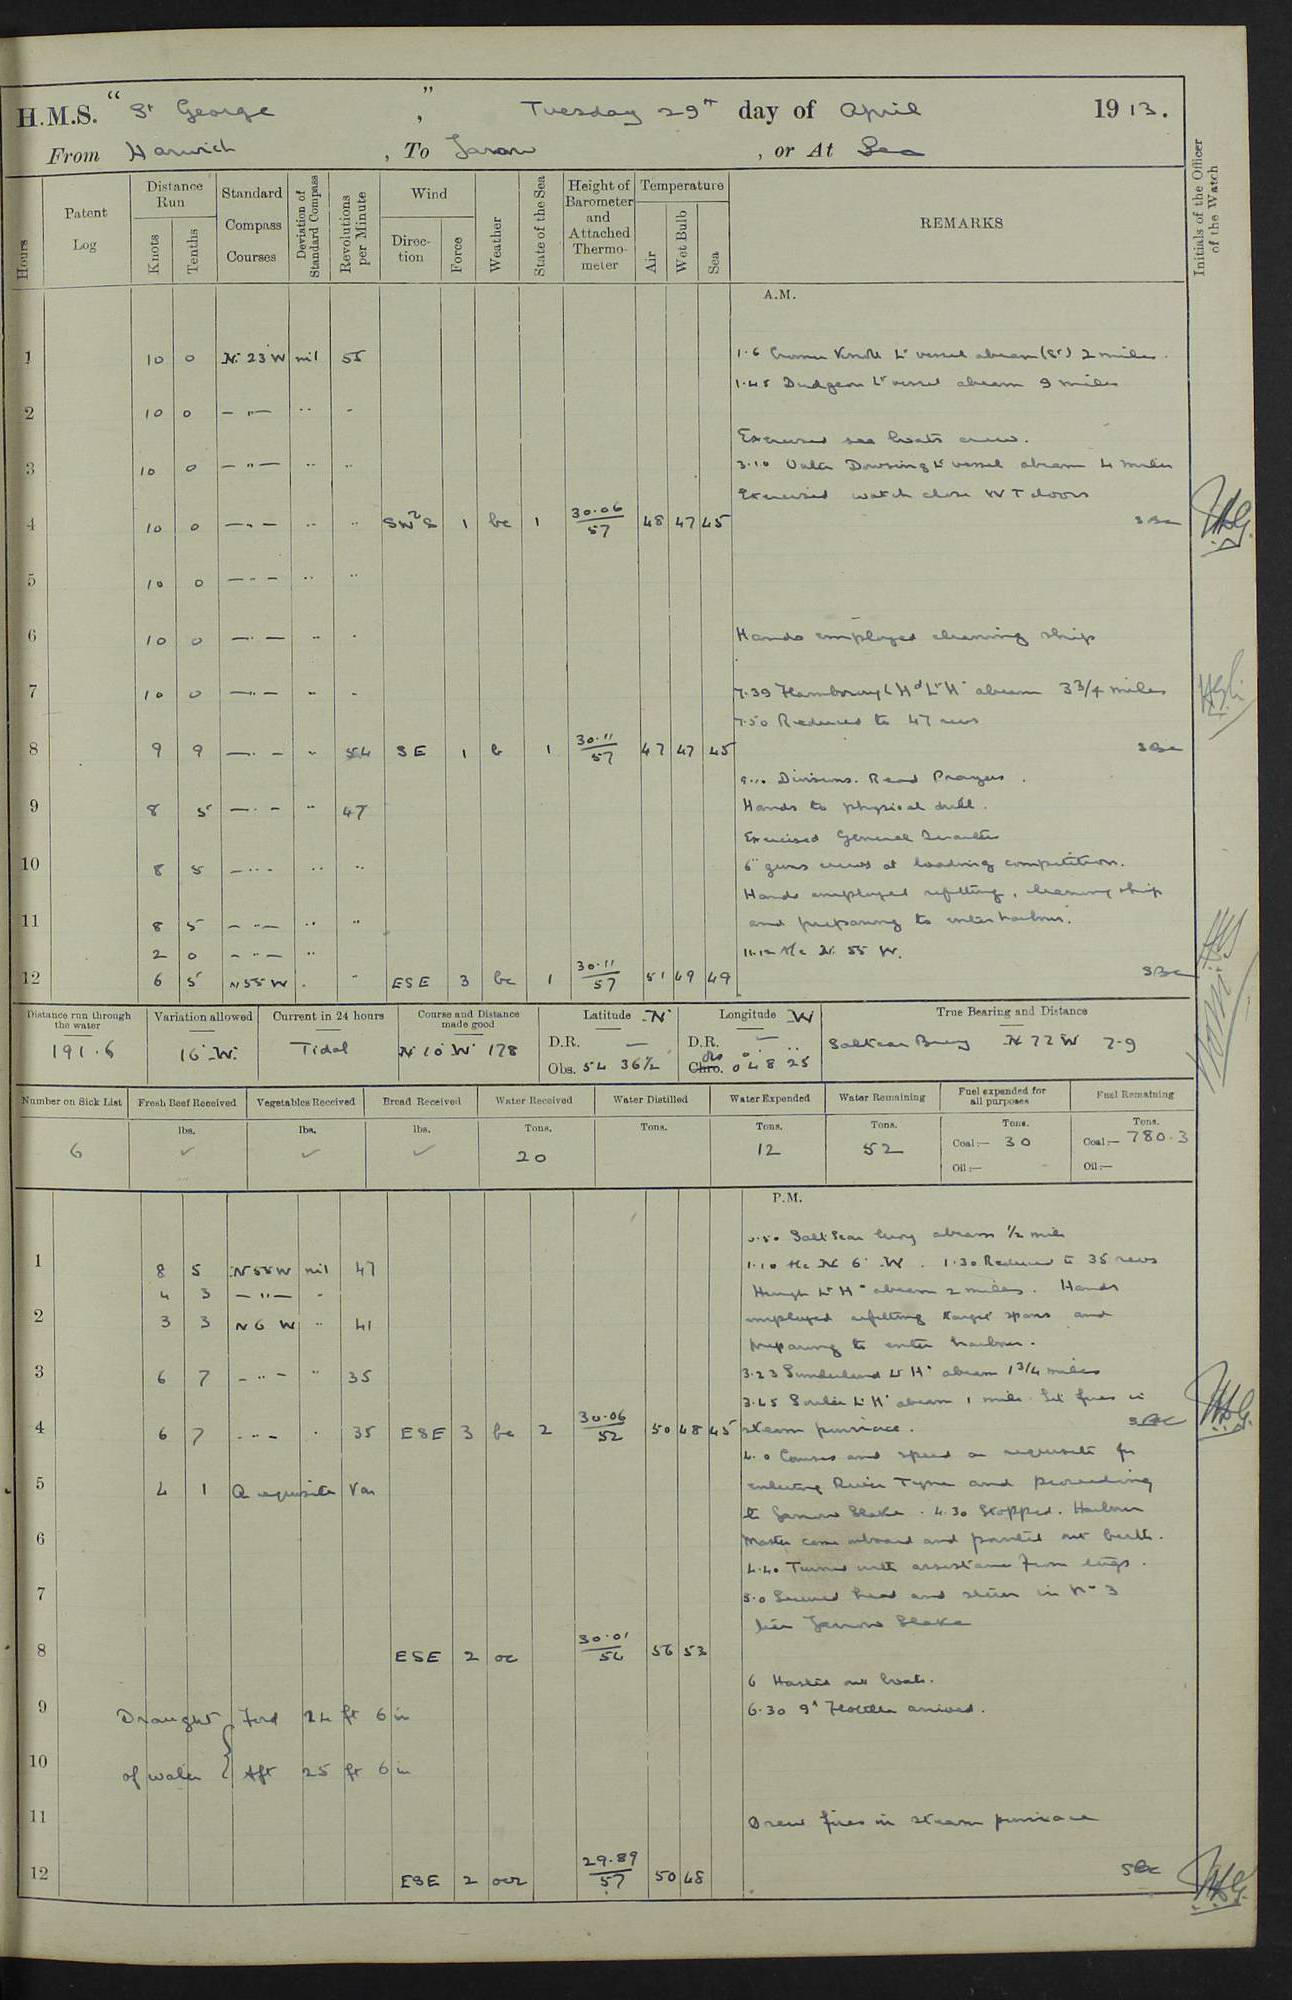 H.M.S. "St George", Tuesday 29th day of April 1913.
From Harwich, To Jarrow, or At Sea
Hours
Patent Log
Distance Run
Knots
Tenths
Standard Compass Courses
Deviation of Standard Compass
Revolutions per Minute
Wind
Direction
Force
Weather
State of the Sea
Height of Barometer and Attached Thermometer
Temperature
Air
Wet Bulb
Sea
REMARKS
Initials of the Officer of the Watch
A.M.
1 10 0 N. 23 W nil 55 1.6 Cromer Knoll Lt vessel abeam (St) 2 miles.
1.45 Dudgeon Lt vessel abeam 9 miles
2 10 0 — " — " "
Exercised sea boats crew.
3 10 0 — " — " " 3.10 Outer Dowsing Lt vessel abeam 4 miles
Exercised watch close W T doors
4 10 0 — " — " " SW2S 1 bc 1 30.06 57 48 47 45
5 10 0 — " — " "
6 10 0 — " — " " Hands employed cleaning ship
7 10 0 — " — " " 7.39 Flamborough Hd Lt H. abeam 3 3/4 miles
7.50 Reduced to 47 revs
8 9 9 — " — " 54 SE 1 b 1 30.11 57 47 47 45
9... Divisions. Read Prayers.
9 8 5 — " — " 47 Hands to physical drill.
Exercised General Quarters
10 8 5 — " — " " 6" guns crews at loading competition.
Hands employed refitting, cleaning ship
11 8 5 — " — " " and preparing to enter harbour.
2 0 — " — " 11.12 A/c N. 55 W.
12 6 5 N 55 W " ESE 3 bc 1 30.11 57 51 49 49
Distance run through the water
Variation allowed
Current in 24 hours
Course and Distance made good
Latitude N
Longitude W
True Bearing and Distance
191.6 16° W. Tidal N 10° W 178 D.R. — D.R. — Saltscar Buoy N 72 W 7.9
Obs. 54 36 1/2 Chro. Obs 0 48 25
Number on Sick List
Fresh Beef Received
Vegetables Received
Bread Received
Water Received
Water Distilled
Water Expended
Water Remaining
Fuel expended for all purposes
Fuel Remaining
lbs. lbs. lbs. Tons. Tons. Tons. Tons. Tons. Tons.
6 ✓ ✓ ✓ 20 12 52 Coal:— 30 Coal:— 780.3
Oil:— Oil:—
P.M.
0.50 Salt Scar buoy abeam 1/2 mile
1 8 5 N 55 W nil 47 1.10 A/c N 6° W. 1.30 Reduced to 35 revs
4 3 — " — " Heugh Lt H. abeam 2 miles. Hands
2 3 3 N 6 W " 41 employed refitting target spars and
preparing to enter harbour.
3 6 7 — " — " 35 3.23 Sunderland Lt H. abeam 1 3/4 miles
3.45 Souter Lt H. abeam 1 mile. Lit fires in
4 6 7 — " — " 35 ESE 3 bc 2 30.06 52 50 48 45 steam pinnace.
4.0 Courses and speed as requisite for
5 4 1 As requisite Var entering River Tyne and proceeding
to Jarrow Slake. 4.30 Stopped. Harbour
6 Master came onboard and pointed out berth.
4.40 Turned with assistance from tugs.
7 5.0 Secured head and stern in No 3
tier Jarrow Slake
8 ESE 2 oc 30.01 54 56 53
6 Hoisted out boats.
9 Draught Ford 24 ft 6 in 6.30 9th Flotilla arrived.
10 of water Aft 25 ft 6 in
11 Drew fires in steam pinnace
12 ESE 2 ocr 29.89 57 50 48